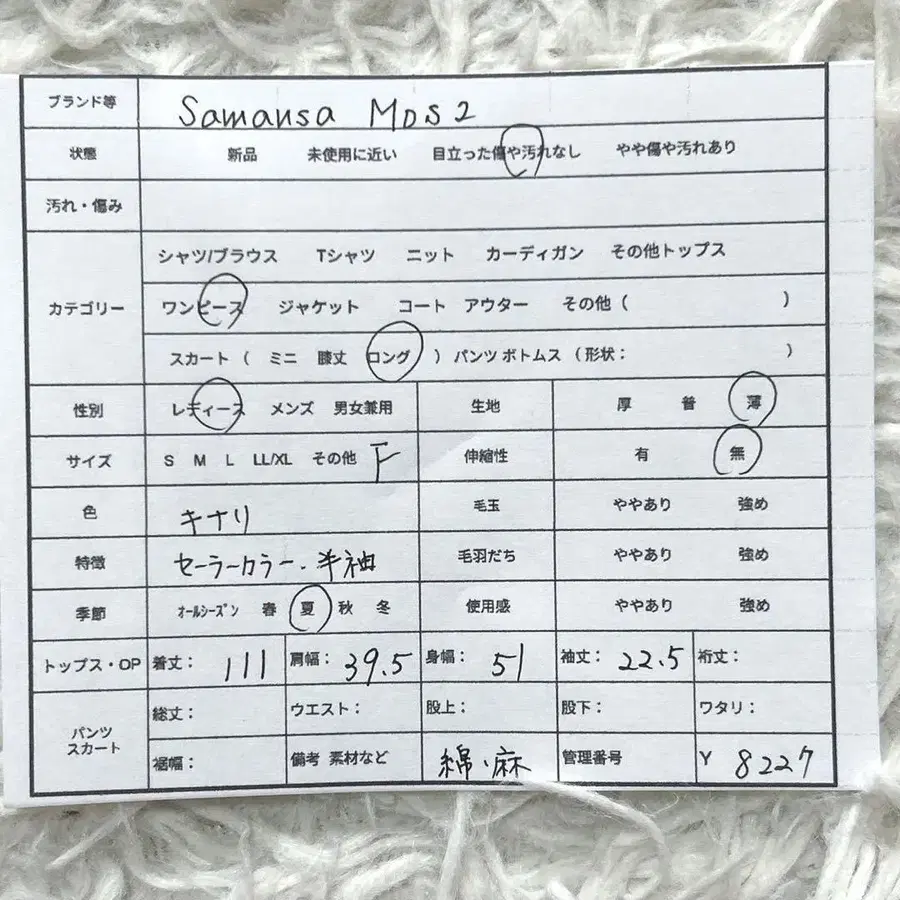 ブランド等 Samansa MOS2
状態 新品 未使用に近い 目立った傷や汚れなし やや傷や汚れあり
汚れ・傷み
シャツ/ブラウス Tシャツ ニット カーディガン その他トップス
カテゴリー ワンピース ジャケット コート アウター その他 ( )
スカート ( ミニ 膝丈 ロング ) パンツ ボトムス (形状: )
性別 レディース メンズ 男女兼用 生地 厚 普 薄
サイズ S M L LL/XL その他 F 伸縮性 有 無
色 キナリ 毛玉 ややあり 強め
特徴 セーラーカラー・半袖 毛羽だち ややあり 強め
季節 オールシーズン 春 夏 秋 冬 使用感 ややあり 強め
トップス・OP 着丈: 111 肩幅: 39.5 身幅: 51 袖丈: 22.5 裄丈:
パンツ スカート 総丈: ウエスト: 股上: 股下: ワタリ:
裾幅: 備考 素材など 綿・麻 管理番号 Y 8227